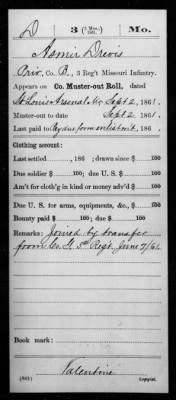 D 3 (3 Mos. 1861.) Mo.
Drevis
Priv, Co. B, 3 Reg't Missouri Infantry.
Appears on Co. Muster-out Roll, dated
St Louis Arsenal Mo, Sept 2, 1861.
Muster-out to date Sept 2, 1861.
Last paid to Pay due from enlistmt, 186 .
Clothing account:
Last settled , 186 ; drawn since $ 100
Due soldier $ 100; due U. S. $ 100
Am't for cloth'g in kind or money adv'd $ 100
Due U. S. for arms, equipments, &c., $ 100
Bounty paid $ 100; due $ 100
Remarks: Joined by transfer
from Co. 5" Reg't June 7/61.
Book mark:
Valentine
(861) Copyist.